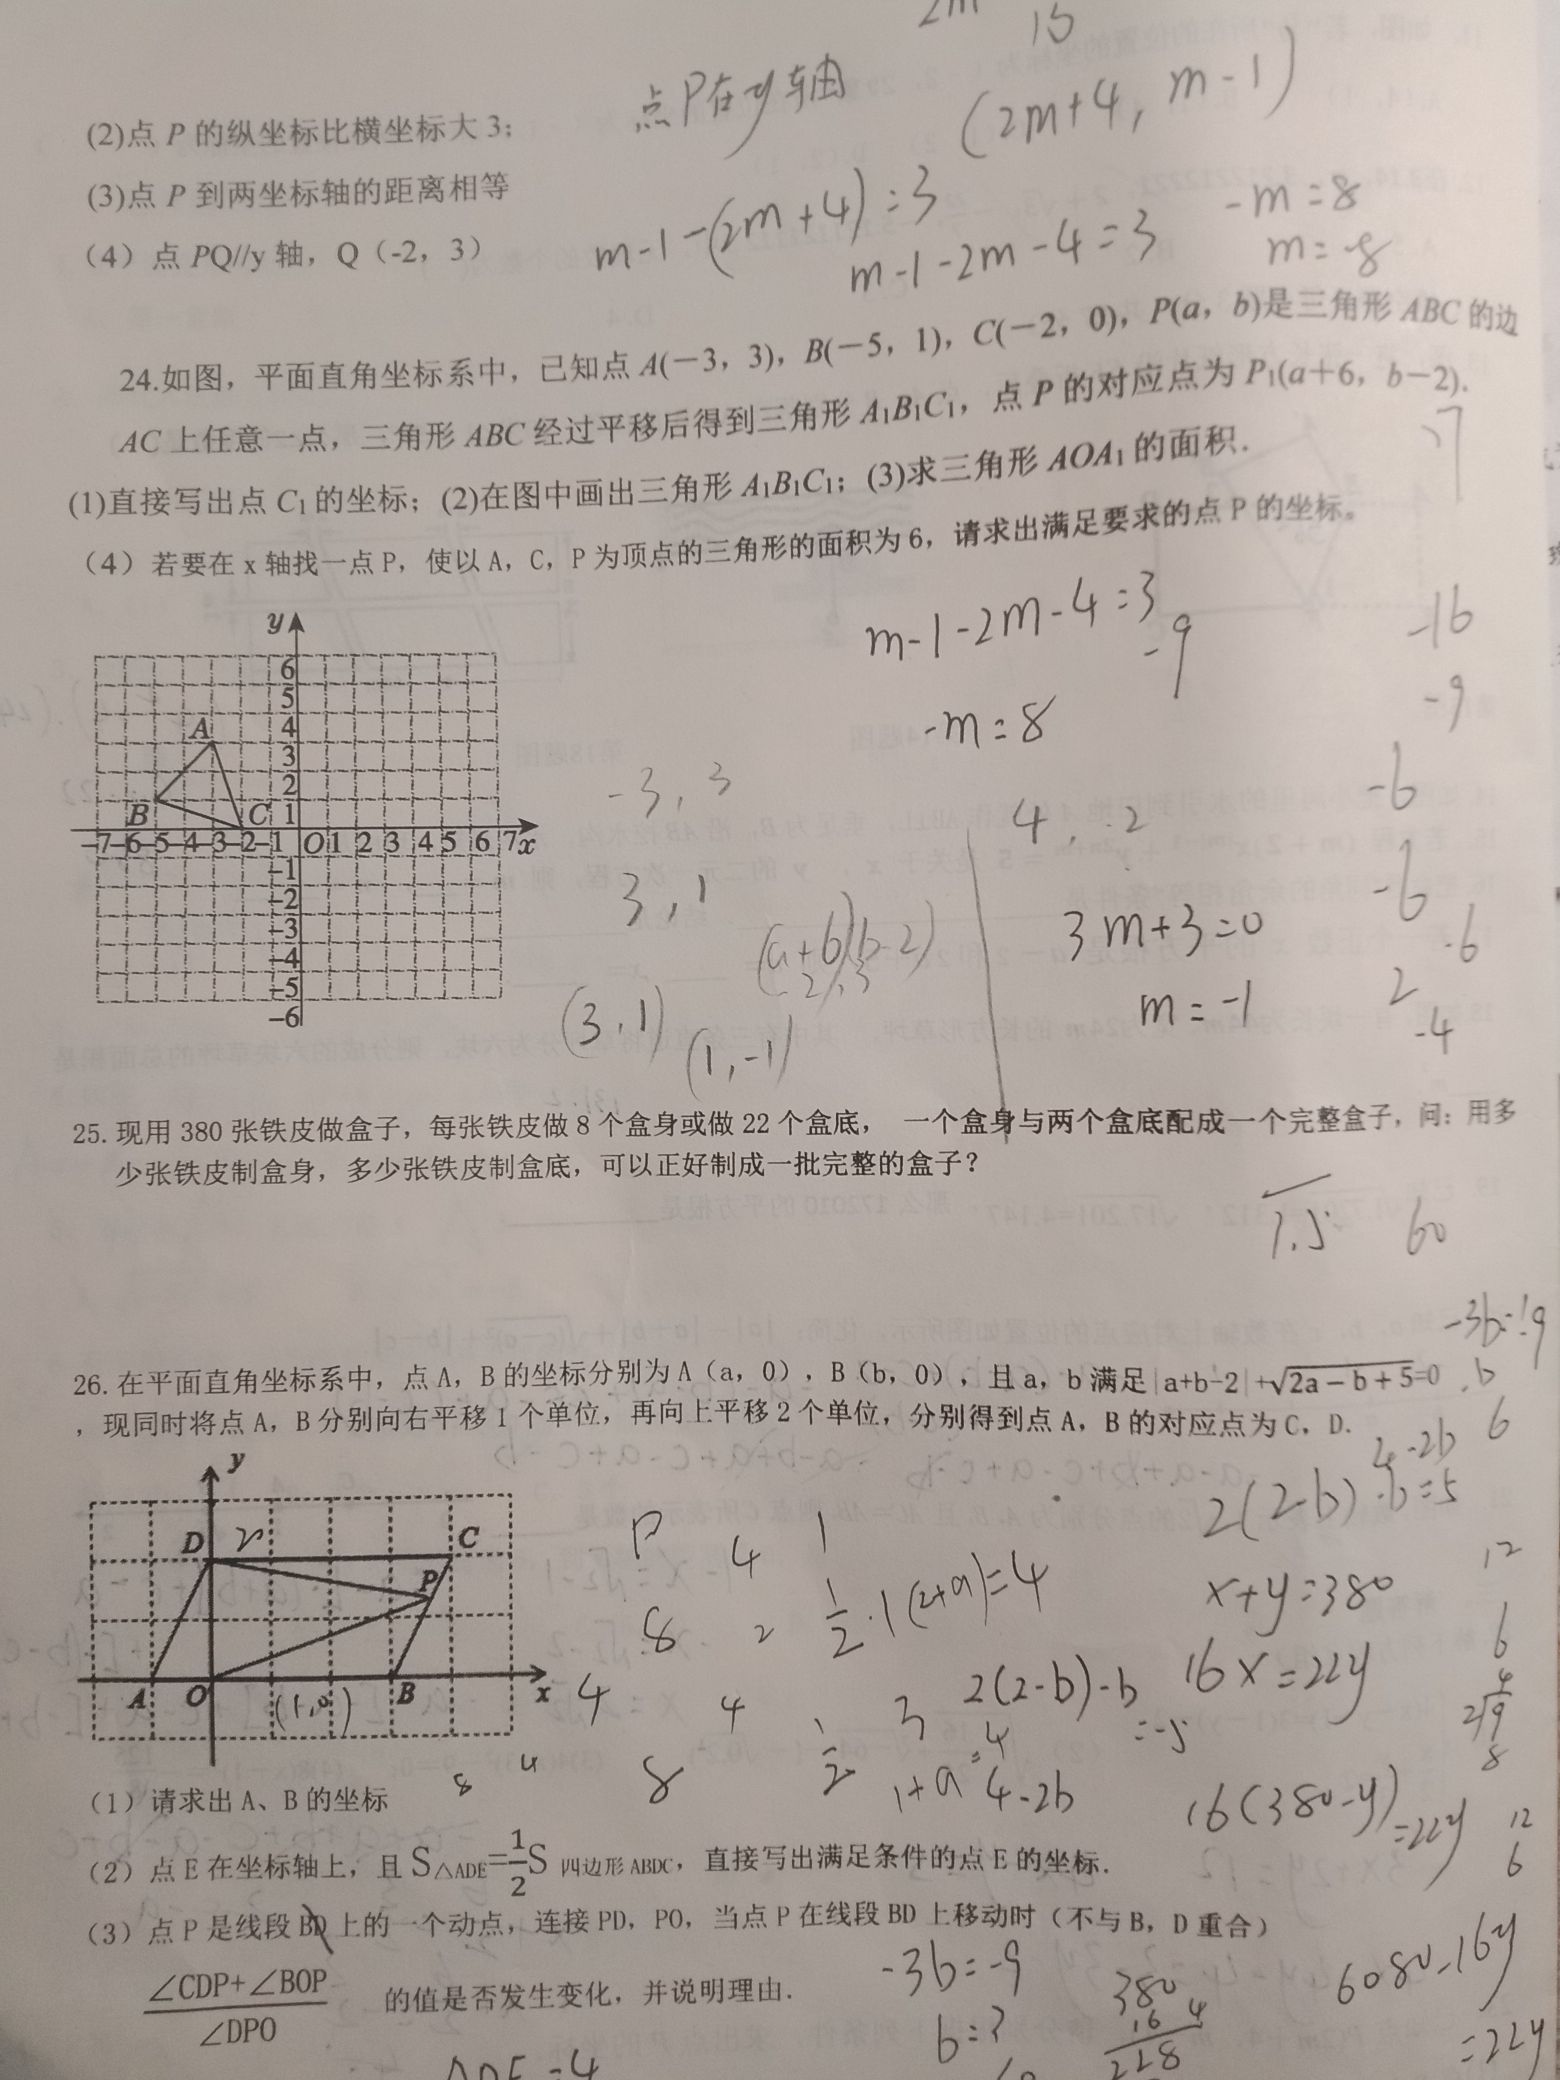 2m 13
点P在y轴
(2m+4, m-1)
(2)点 P 的纵坐标比横坐标大 3;
(3)点 P 到两坐标轴的距离相等
m-1-(2m+4)=3
-m=8
(4) 点 PQ//y 轴, Q (-2, 3)
m-1-2m-4=3
m=-8
24.如图, 平面直角坐标系中, 已知点 A(-3, 3), B(-5, 1), C(-2, 0), P(a, b)是三角形 ABC 的边
AC 上任意一点, 三角形 ABC 经过平移后得到三角形 A₁B₁C₁, 点 P 的对应点为 P₁(a+6, b-2).
(1)直接写出点 C₁ 的坐标; (2)在图中画出三角形 A₁B₁C₁; (3)求三角形 AOA₁ 的面积.
(4) 若要在 x 轴找一点 P, 使以 A, C, P 为顶点的三角形的面积为 6, 请求出满足要求的点 P 的坐标。
m-1-2m-4=3
-9
-16
-9
-m=8
y
6
5
A 4
3
2
B C 1
-7-6-5-4-3-2-1 O 1 2 3 4 5 6 7 x
-1
-2
-3
-4
-5
-6
-3, 3
4, -2
-6
3, 1
-6
(a+6, b-2)
-2, 3
3m+3=0
-6
(3, 1)
(1, -1)
m=-1
2
-4
25. 现用 380 张铁皮做盒子, 每张铁皮做 8 个盒身或做 22 个盒底, 一个盒身与两个盒底配成一个完整盒子, 问: 用多
少张铁皮制盒身, 多少张铁皮制盒底, 可以正好制成一批完整的盒子?
1.5 60
-3b=-9
26. 在平面直角坐标系中, 点 A, B 的坐标分别为 A (a, 0), B (b, 0), 且 a, b 满足|a+b-2|+√2a-b+5=0
, 现同时将点 A, B 分别向右平移 1 个单位, 再向上平移 2 个单位, 分别得到点 A, B 的对应点为 C, D.
6
4-2b
2(2-b)-b=5
y
D C
P
A O B x
(1,0)
P 4 1
8 2 1/2·1(2+a)=4
x+y=380
12
6
4 4
3
2(2-b)-b
=-5
16x=22y
8 4 8 1/2
1+a=4
4-2b
16(380-y)
=22y
12
6
(1) 请求出 A、B 的坐标
(2) 点 E 在坐标轴上, 且 S△ADE=1/2S 四边形 ABDC, 直接写出满足条件的点 E 的坐标.
(3) 点 P 是线段 BD 上的一个动点, 连接 PD, PO, 当点 P 在线段 BD 上移动时 (不与 B, D 重合)
∠CDP+∠BOP
∠DPO
的值是否发生变化, 并说明理由.
-3b=-9
b=3
380
16 4
228
6080-16y
=22y
ADE=4